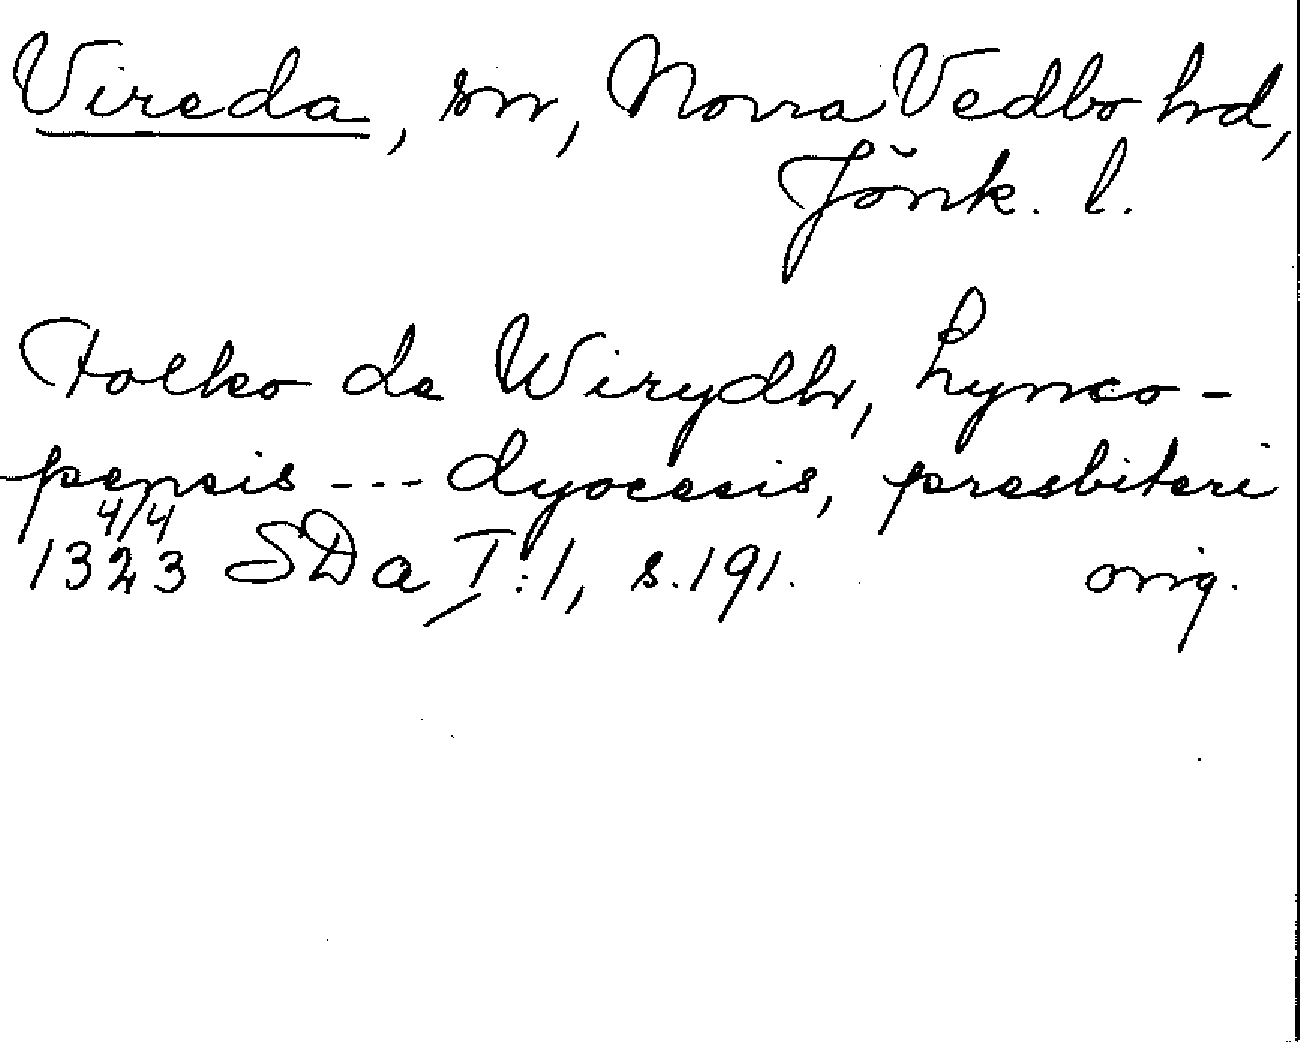 Vireda, sn, Norra Vedbo hd,
Jönk. l.
Folko de Wirydhr, Lynco-
pensis --- dyocesis, presbiteri
4/4
1323 SDa I:1, s. 191. orig.